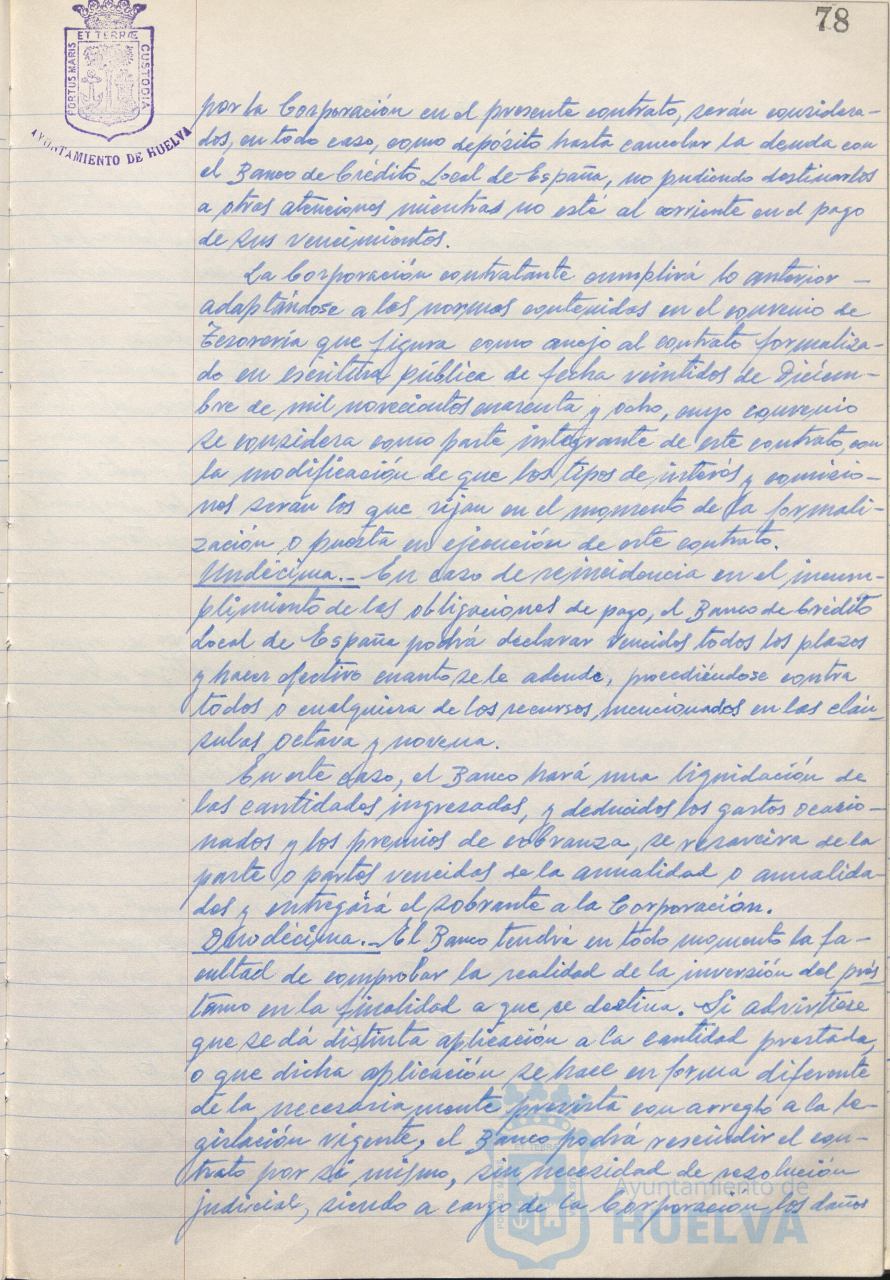 78
PORTUS MARIS ET TERRÆ CUSTODIA
AYUNTAMIENTO DE HUELVA
por la Corporación en el presente contrato, serán considera-
dos, en todo caso, como depósito hasta cancelar la deuda con
el Banco de Crédito Local de España, no pudiendo destinarlos
a otras atenciones mientras no esté al corriente en el pago
de sus vencimientos.
La Corporación contratante cumplirá lo anterior —
adaptándose a las normas contenidas en el convenio de
Tesorería que figura como anejo al contrato formaliza-
do en escritura pública de fecha veintidos de Diciem-
bre de mil novecientos cuarenta y ocho, cuyo convenio
se considera como parte integrante de este contrato, con
la modificación de que los tipos de interés y comisio-
nes serán los que rijan en el momento de la formali-
zación o puesta en ejecución de este contrato.
Undécima.- En caso de reincidencia en el incum-
plimiento de las obligaciones de pago, el Banco de Crédito
Local de España podrá declarar vencidos todos los plazos
y hacer efectivo cuanto se le adeude, procediéndose contra
todos o cualquiera de los recursos mencionados en las cláu-
sulas octava y novena.
En este caso, el Banco hará una liquidación de
las cantidades ingresadas, y deducidos los gastos ocasio-
nados y los premios de cobranza, se resarcira de la
parte o partes vencidas de la anualidad o anualida-
des y entregará el sobrante a la Corporación.
Duodécima.- El Banco tendrá en todo momento la fa-
cultad de comprobar la realidad de la inversión del prés-
tamo en la finalidad a que se destina. Si advirtiese
que se dá distinta aplicación a la cantidad prestada,
o que dicha aplicación se hace en forma diferente
de la necesariamente prevista con arreglo a la le-
gislación vigente, el Banco podrá rescindir el con-
trato por sí mismo, sin necesidad de resolución
judicial, siendo a cargo de la Corporación los daños
Ayuntamiento de
HUELVA